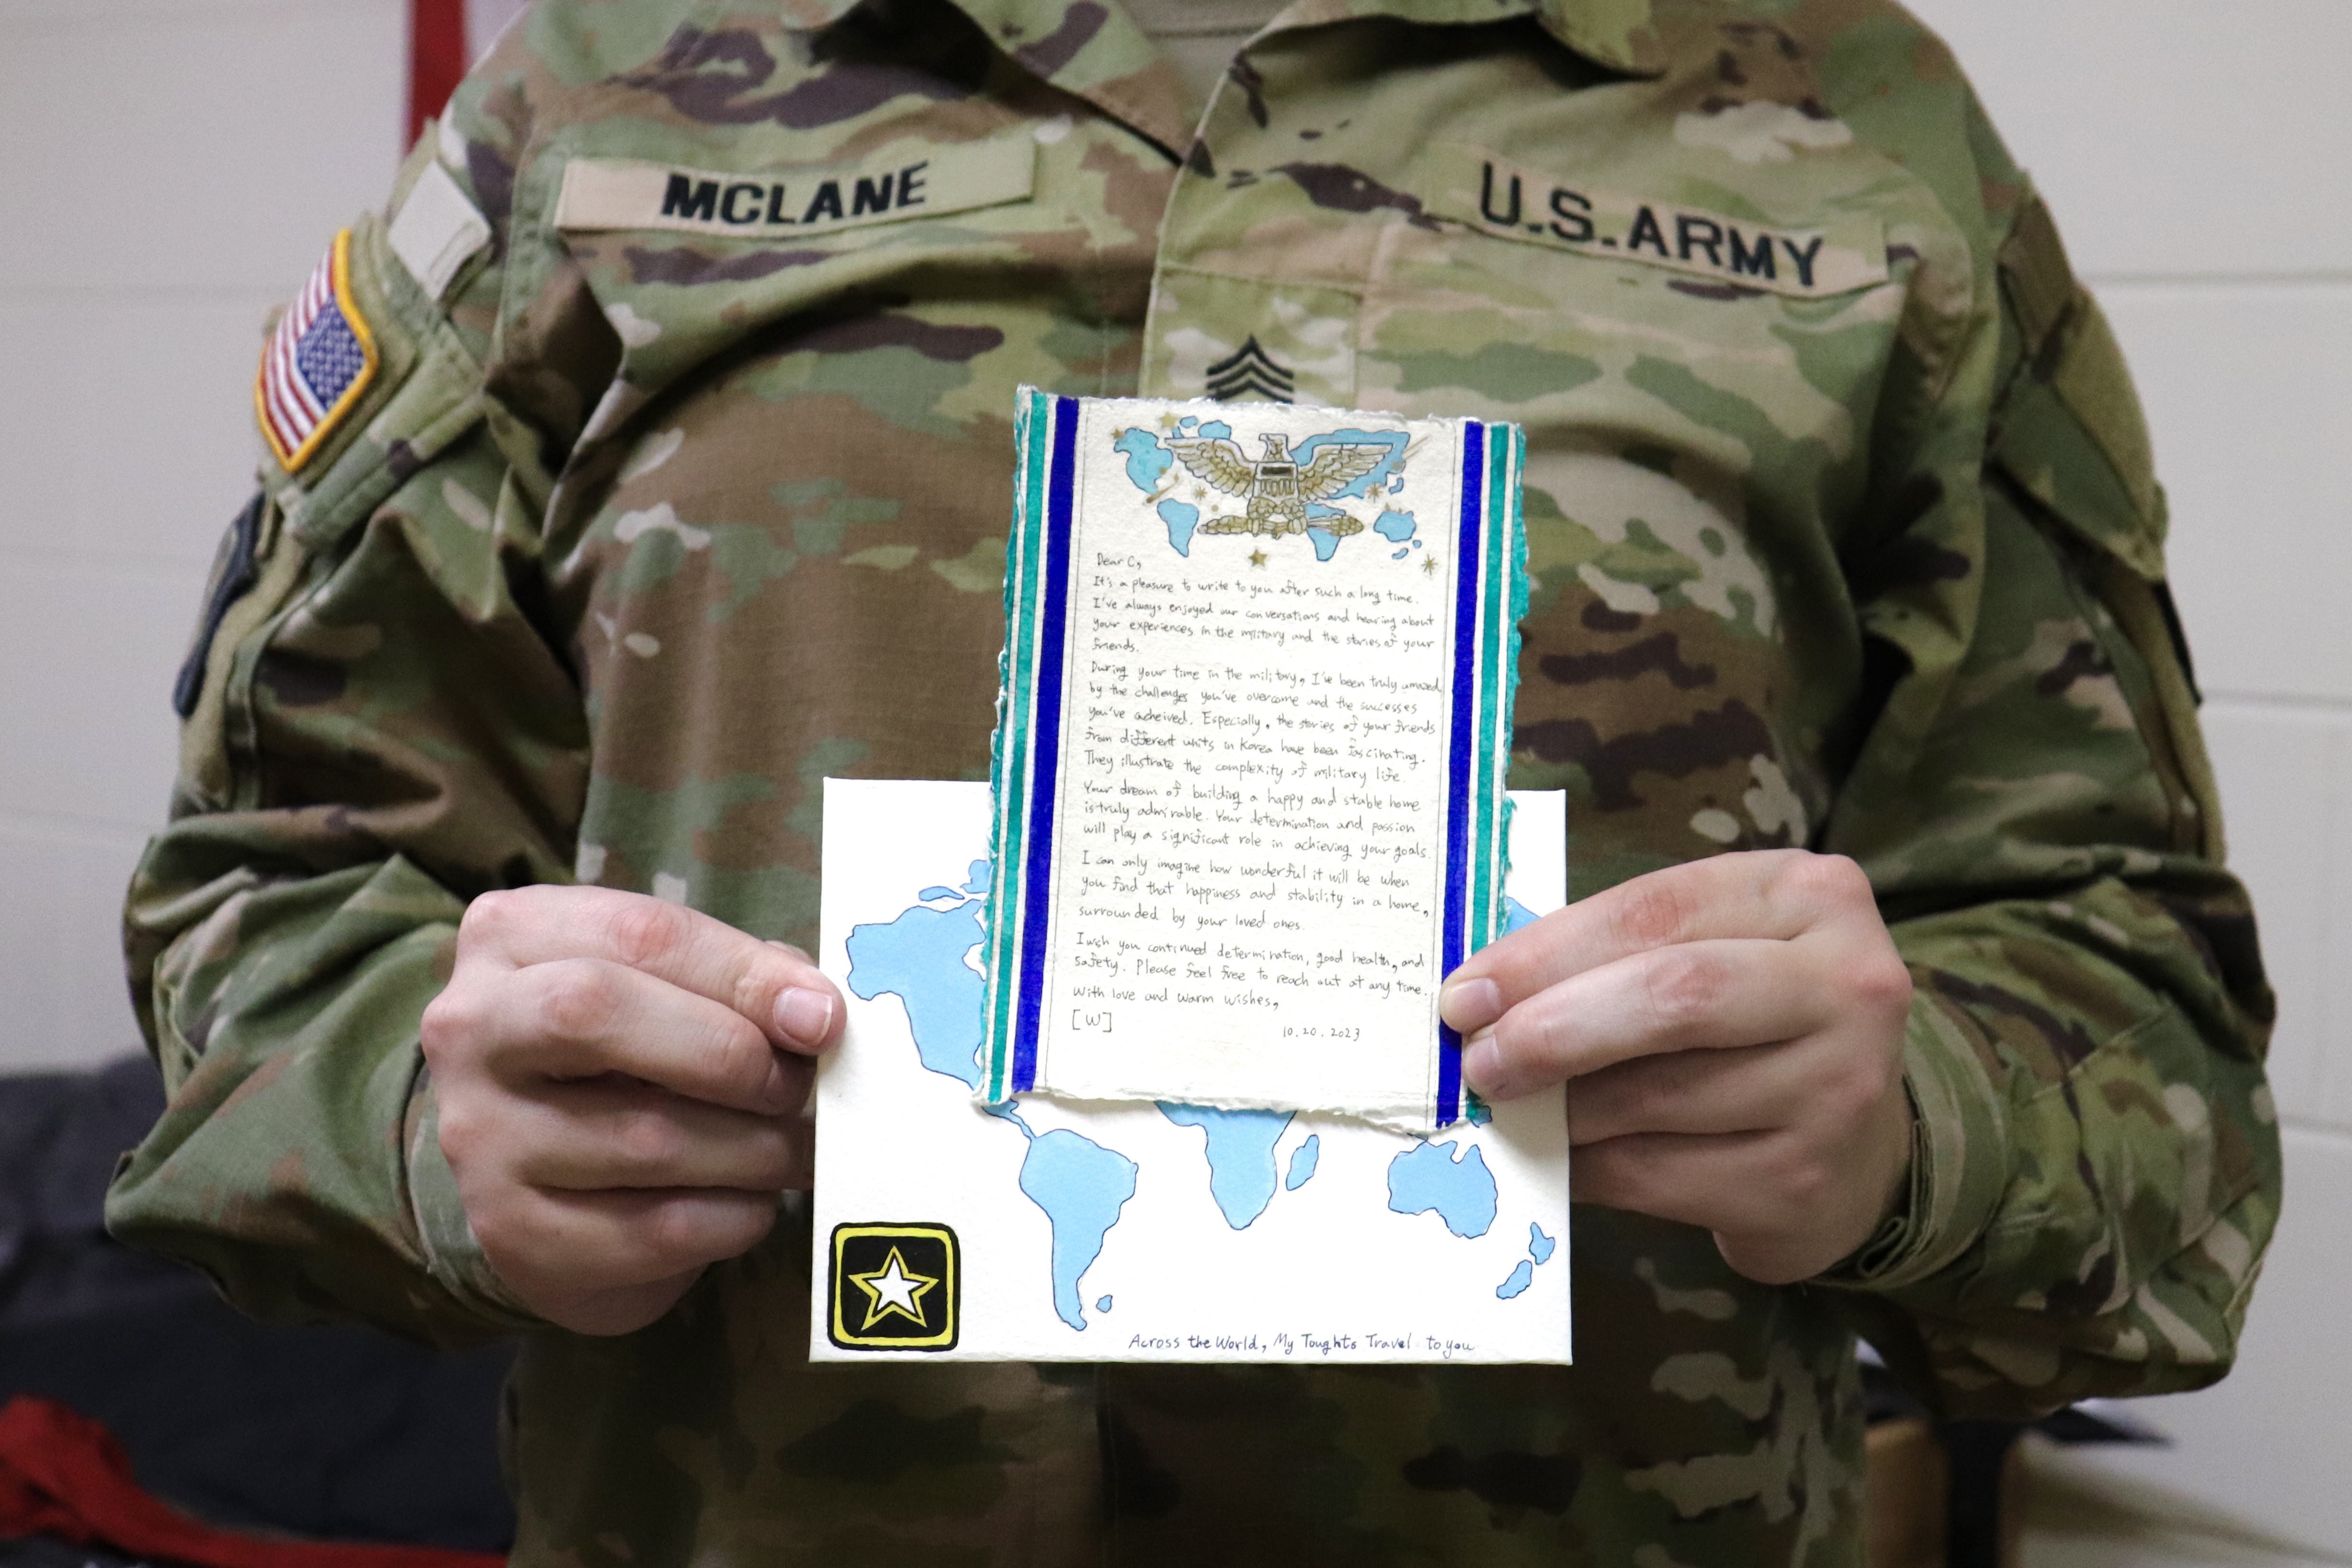 MCLANE
U.S. ARMY
Dear C,
It's a pleasure to write to you after such a long time.
I've always enjoyed our conversations and hearing about
your experiences in the military and the stories of your
friends.
During your time in the military, I've been truly amazed
by the challenges you've overcome and the successes
you've acheived. Especially, the stories of your friends
from different units in Korea have been fascinating.
They illustrate the complexity of military life.
Your dream of building a happy and stable home
is truly admirable. Your determination and passion
will play a significant role in achieving your goals.
I can only imagine how wonderful it will be when
you find that happiness and stability in a home,
surrounded by your loved ones.
I wish you continued determination, good health, and
safety. Please feel free to reach out at any time.
With love and warm wishes,
[W] 10.20.2023
Across the World, My Toughts Travel to you